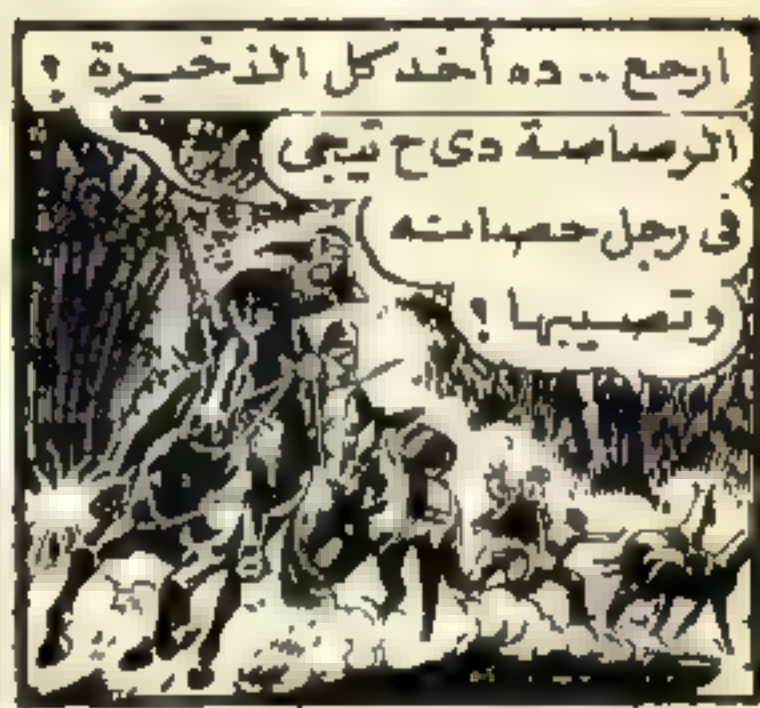 ارجع .. ده أخد كل الذخيرة !
الرصاصة دى ح تيجى
فى رجل حصانه
وتصيبها !